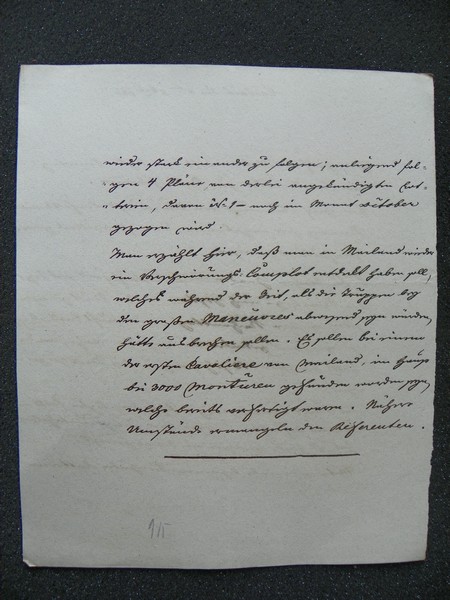 wieder stark ein ander zu folgen; anliegend fol-
gen 4 Pläne von derlei angekündigten Lot-
terien, davon N: 1 noch im Monat October
gezogen wird.
Man erzählt hier, daß man in Mailand wieder
ein Verschwörungs-Complot entdekt haben soll,
welches während der Zeit, als die Truppen bey
den großen Maneuvres abwesend seyn würden,
hätte ausbrechen sollen. Es sollen bei einem
der ersten Cavaliere von Mailand, im Hause
bei 3000 Montüren gefunden worden seyn,
welche bereits verfertigt waren. Nähere
Umstände ermangeln den Referenten.